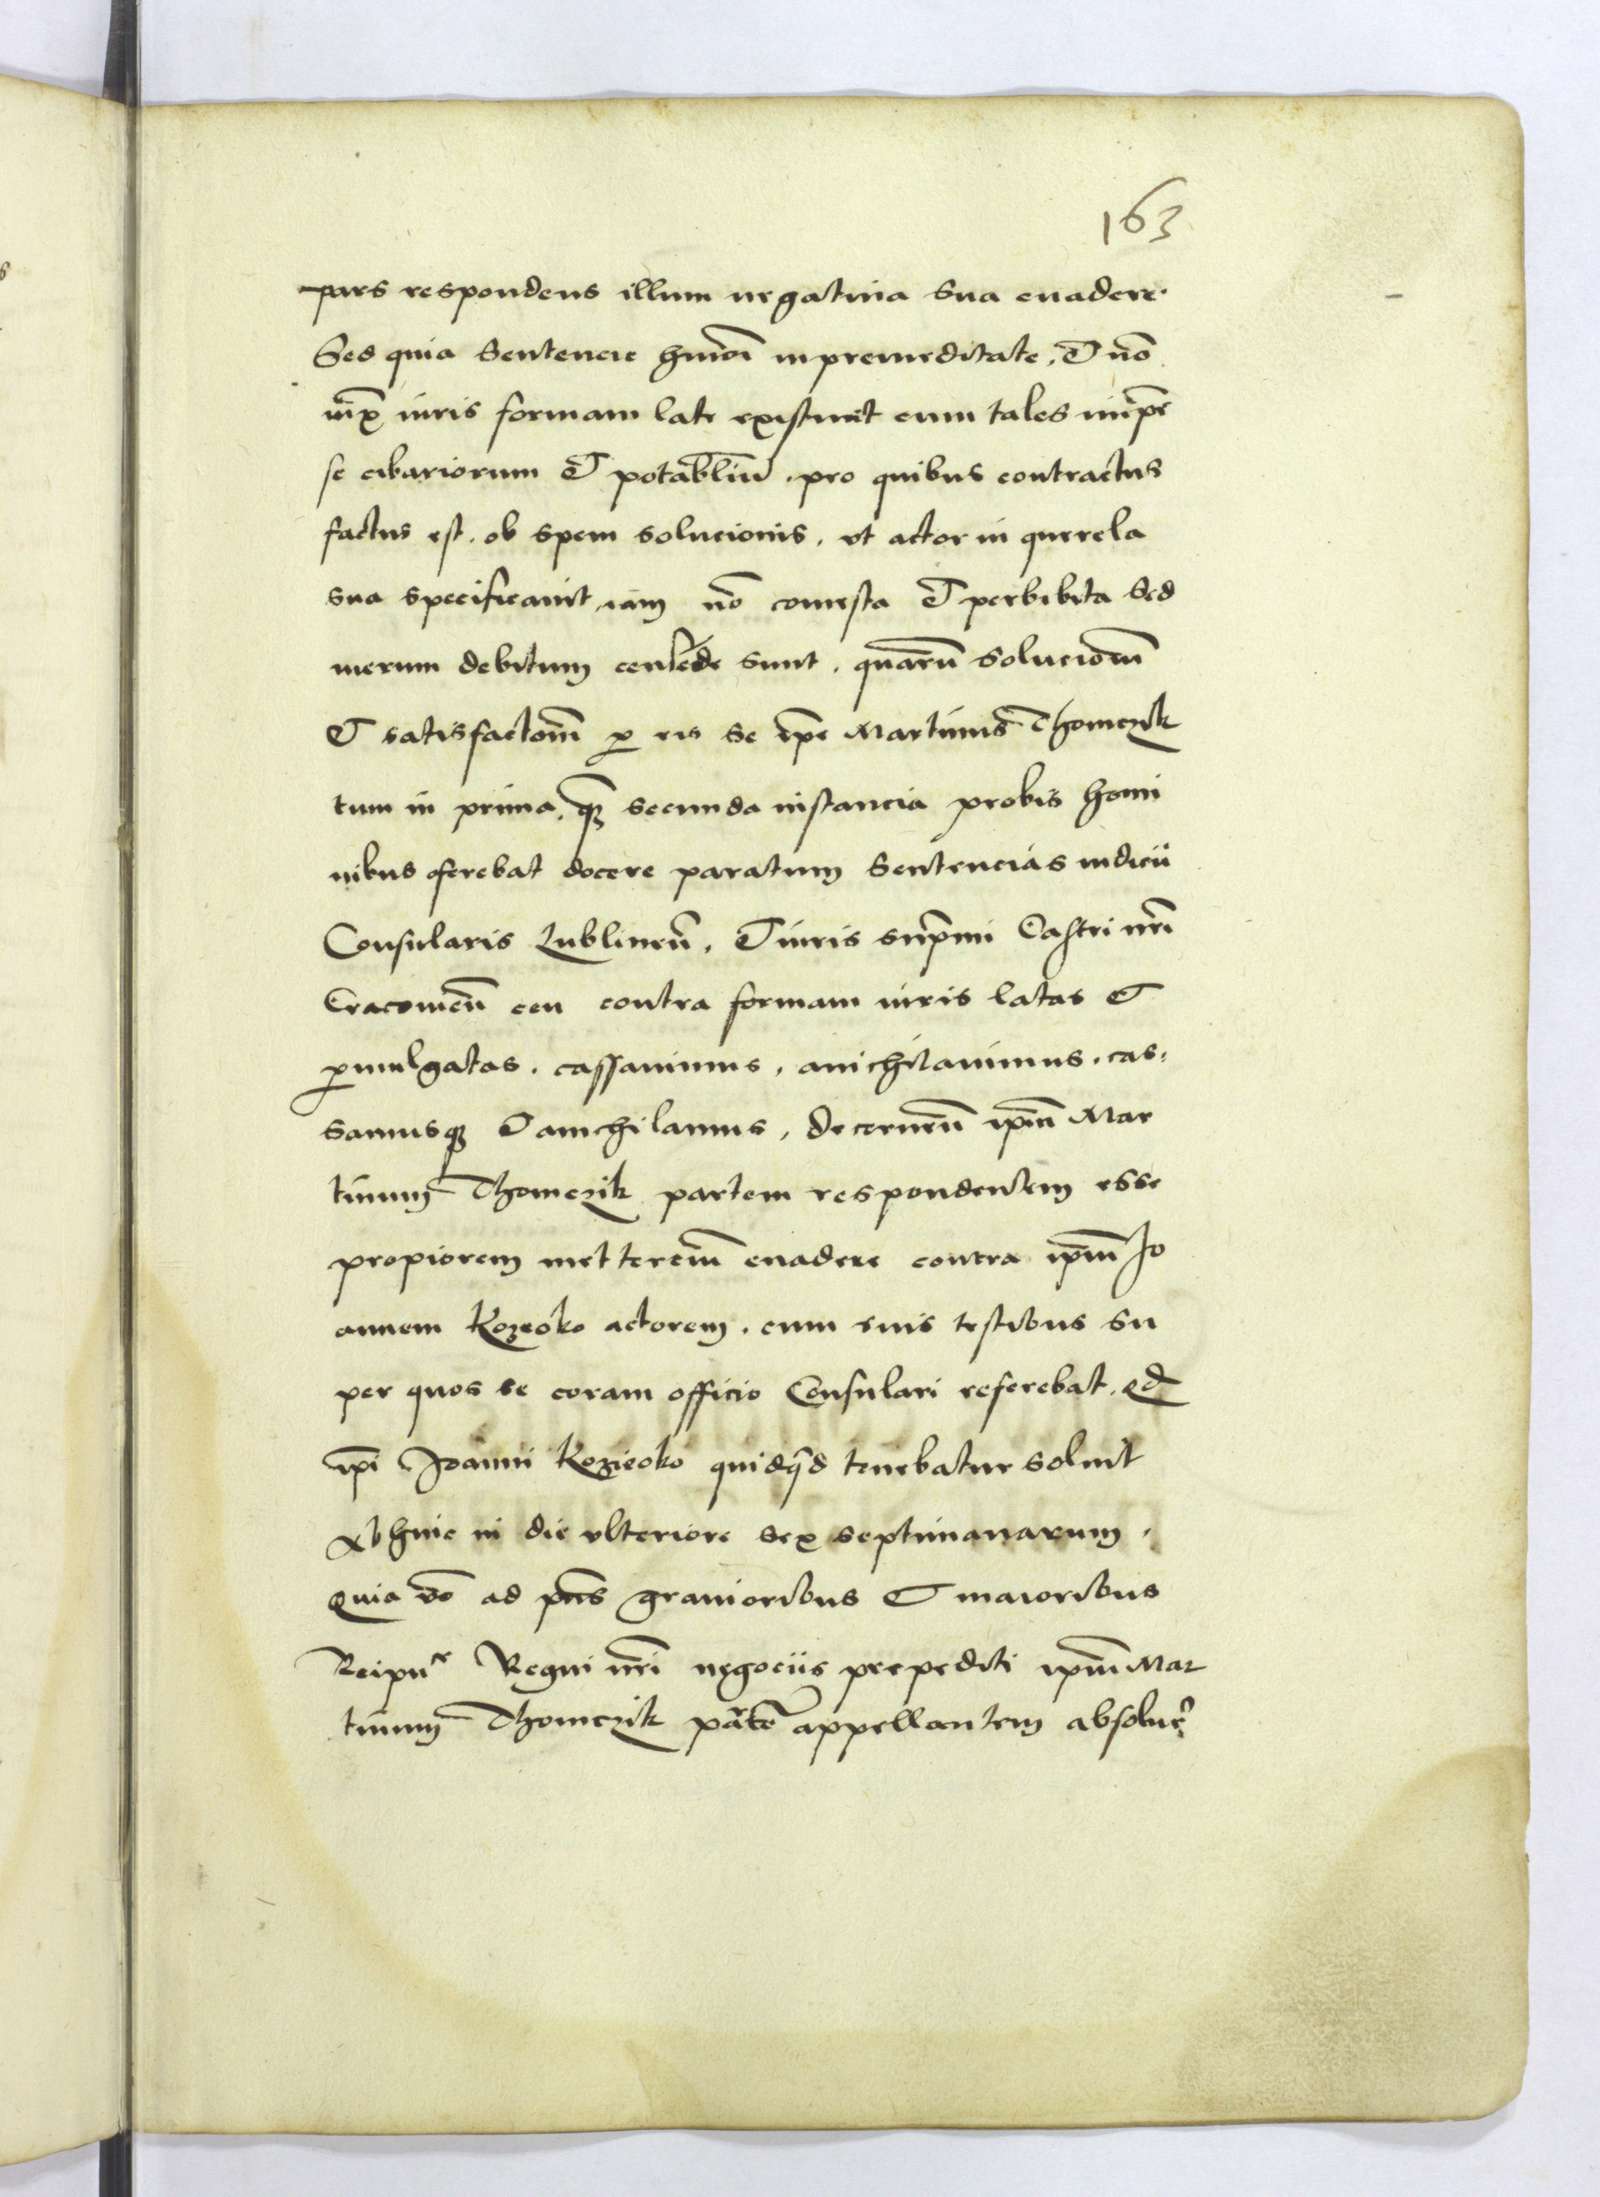 163
pars respondens illum negatiua sua euadere.
Sed quia Sentencie hmoi inpremeditate, & no
iux iuris formam late existunt cum tales impe
se cibariorum & potabliu. pro quibus contractus
factus est. ob spem solucionis. vt actor in querela
sua specificauit, iam no comesta & perbibita Sed
merum debitum censede sunt. quaru Solucionem
& satisfactom p eis se ipe Martinus Thomczik
tum in prima, q secunda instancia probis homi
nibus oferebat docere paratum Sentencias iudicii
Consularis Lublinen, & iuris supmi Castri nri
Cracouien ceu contra formam iuris latas &
pmulgatas. cassauimus, anichilauimus. cas,
samusq & anichilamus, decernen ipm Mar
tinum Thomczik partem respondentem esse
propiorem met tercium euadere contra ipm Jo
annem Kozeoko actorem. cum suis testibus su
per quos se coram officio Consulari referebat. qd
ipi Joanni Kozieoko quidqd tenebatur soluit
Abhinc in die vlteriore sex septimanarum.
Quia vo ad pns grauioribus & maioribus
Reipu Regni nri negociis prepediti ipm Mar
tinum Thomczik parte appellantem absoluer